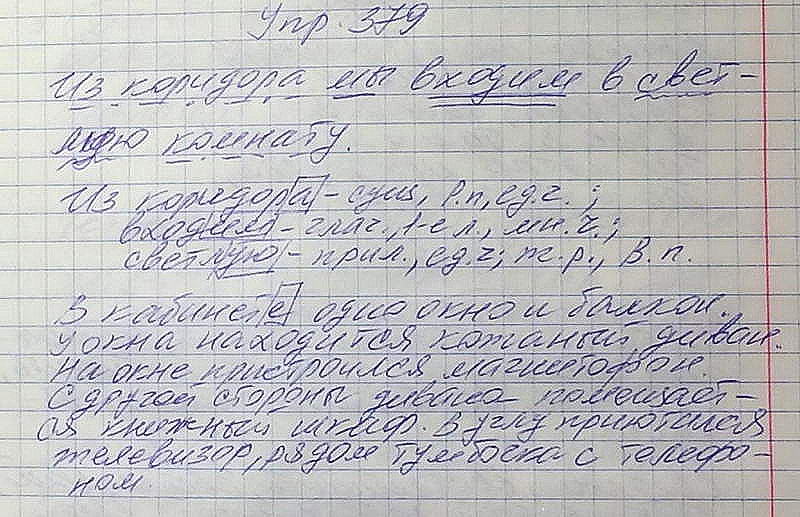 Упр. 379
Из коридора мы входим в свет-
лую комнату.
Из коридора - сущ., Р.п, ед.ч.;
входим - глаг., 1-е л., мн.ч.;
светлую - прил., ед.ч; ж.р., В.п.
В кабинете одно окно и балкон.
У окна находится кожаный диван.
На окне пристроился магнитофон.
С другой стороны дивана помещает-
ся книжный шкаф. В углу приютился
телевизор, рядом тумбочка с телефо-
ном.